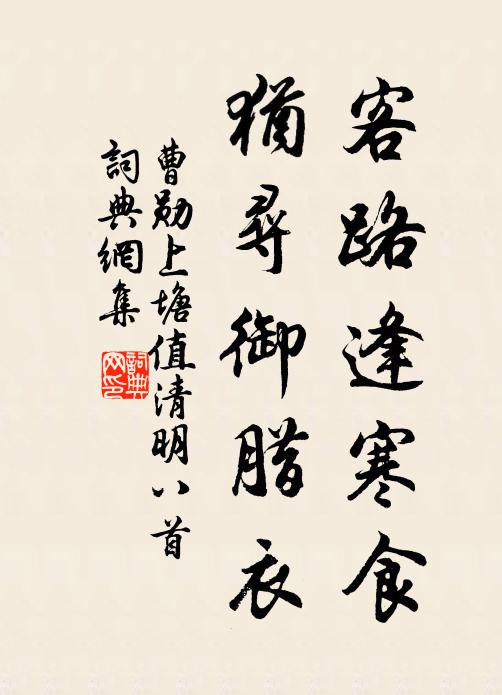 客路逢寒食
猶尋御腊衣
曹勛上塘值清明八首
詞典網集
詞典網印